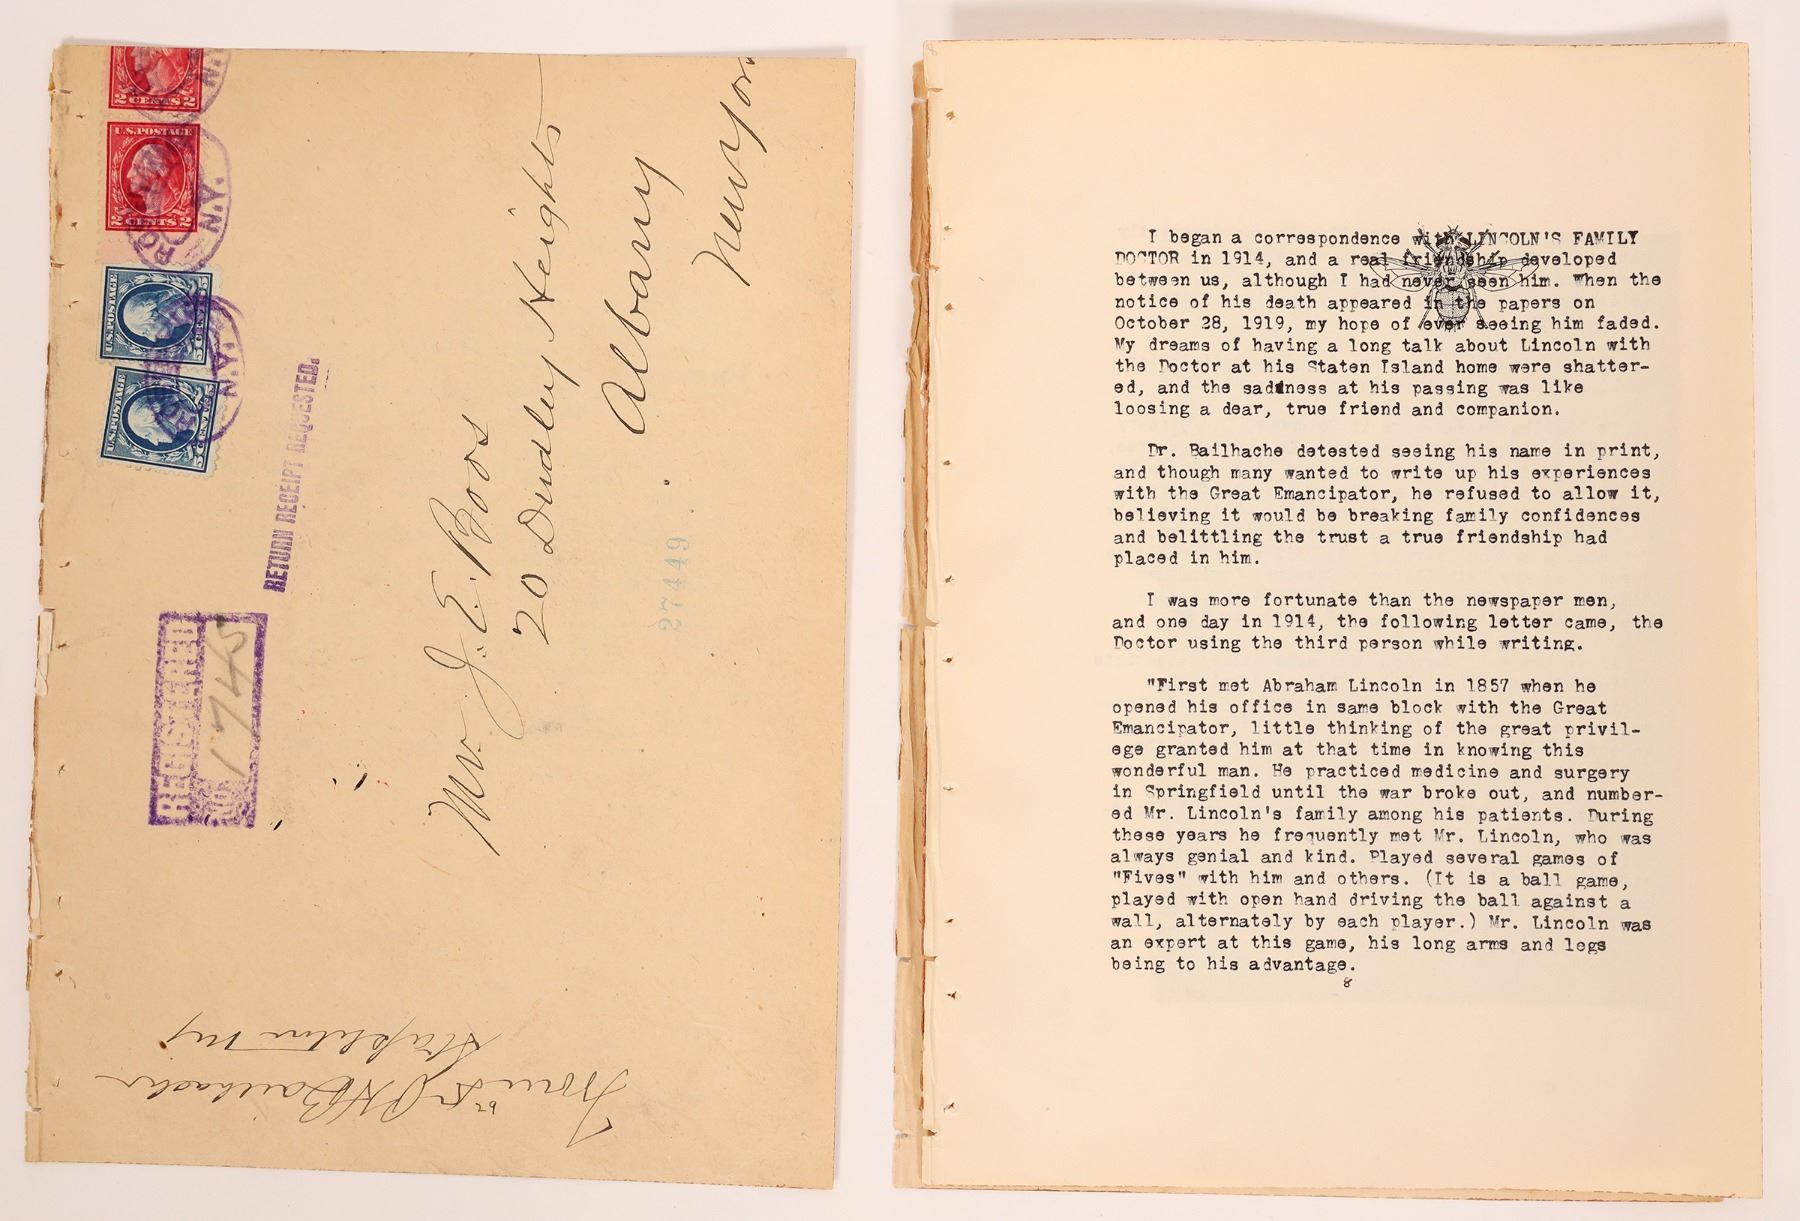 2 CENTS 2
U.S. POSTAGE
2 CENTS 2
N.Y.
U.S. POSTAGE
5 CENTS 5
N.Y.
U.S. POSTAGE
5 CENTS 5
RETURN RECEIPT REQUESTED.
REGISTERED
NO. 1745
Mr. J. E. Boos
20 Dudley Heights
Albany
New York
27449
From Dr. P H Bailhache
Stapleton NY
I began a correspondence with LINCOLN'S FAMILY
DOCTOR in 1914, and a real friendship developed
between us, although I had never seen him. When the
notice of his death appeared in the papers on
October 28, 1919, my hope of ever seeing him faded.
My dreams of having a long talk about Lincoln with
the Doctor at his Staten Island home were shatter-
ed, and the sadness at his passing was like
loosing a dear, true friend and companion.
Dr. Bailhache detested seeing his name in print,
and though many wanted to write up his experiences
with the Great Emancipator, he refused to allow it,
believing it would be breaking family confidences
and belittling the trust a true friendship had
placed in him.
I was more fortunate than the newspaper men,
and one day in 1914, the following letter came, the
Doctor using the third person while writing.
"First met Abraham Lincoln in 1857 when he
opened his office in same block with the Great
Emancipator, little thinking of the great privil-
ege granted him at that time in knowing this
wonderful man. He practiced medicine and surgery
in Springfield until the war broke out, and number-
ed Mr. Lincoln's family among his patients. During
these years he frequently met Mr. Lincoln, who was
always genial and kind. Played several games of
"Fives" with him and others. (It is a ball game,
played with open hand driving the ball against a
wall, alternately by each player.) Mr. Lincoln was
an expert at this game, his long arms and legs
being to his advantage.
8